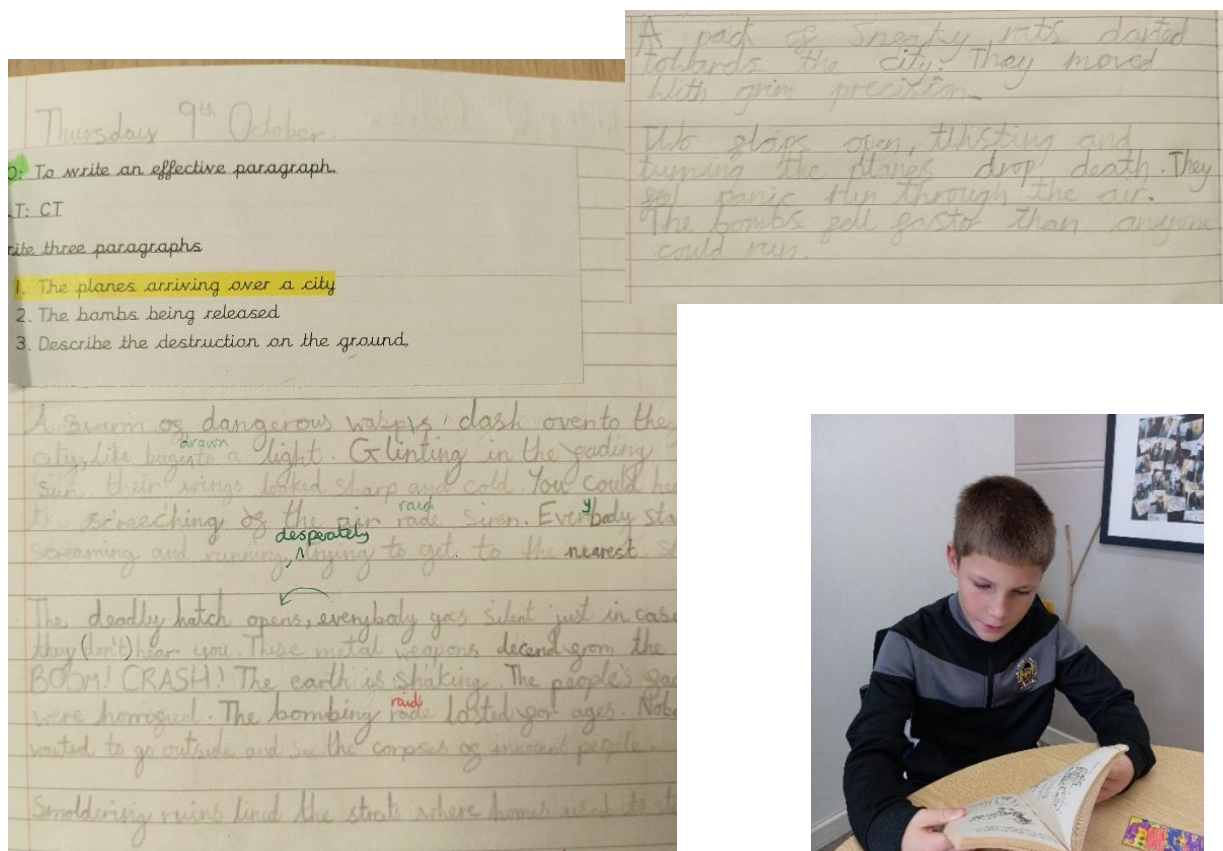 Thursday 9th October.
To write an effective paragraph.
T: CT
ite three paragraphs
1. The planes arriving over a city
2. The bombs being released
3. Describe the destruction on the ground.
A swarm of dangerous wasps, dash over to the
drawn
city, like to a light. Glinting in the fading
sun, their wings looked sharp and cold. You could
raid y
the screeching of the air rade siren. Everbody
desperately
screaming and running, trying to get to the nearest
The deadly hatch opens, everybody goes silent just in case
they (don't) hear you. These metal weapons decend from the
BOOM! CRASH! The earth is shaking. The people's
raid
were horrofied. The bombing rade lasted for ages.
wanted to go outside and see the corpses of innocent people.
Smoldering ruins lined the streets where homes used to
A pack of sneaky rats darted
towards the city. They moved
with grim precision.
open, twisting and
turning the planes drop death. They
panic run through the air.
The bombs fell faster than anyone
could run.